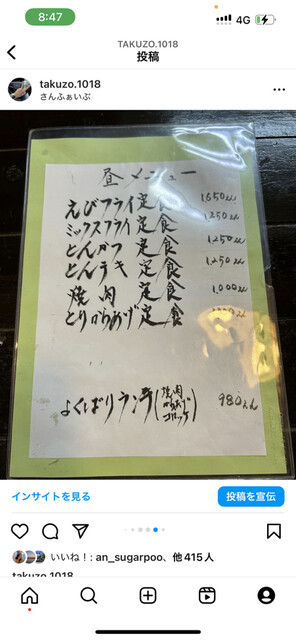 8:47
4G
TAKUZO.1018
投稿
takuzo.1018
さんふぁいぶ
昼メニュー
えびフライ定食 1650
ミックスフライ定食 1250
とんかつ定食 1250
とんテキ定食 1250
焼肉定食 1000
とりからあげ定食
よくばりランチ(焼肉 からあげ コロッケ) 980えん
インサイトを見る
投稿を宣伝
いいね!: an_sugarpoo、他415人
takuzo.1018